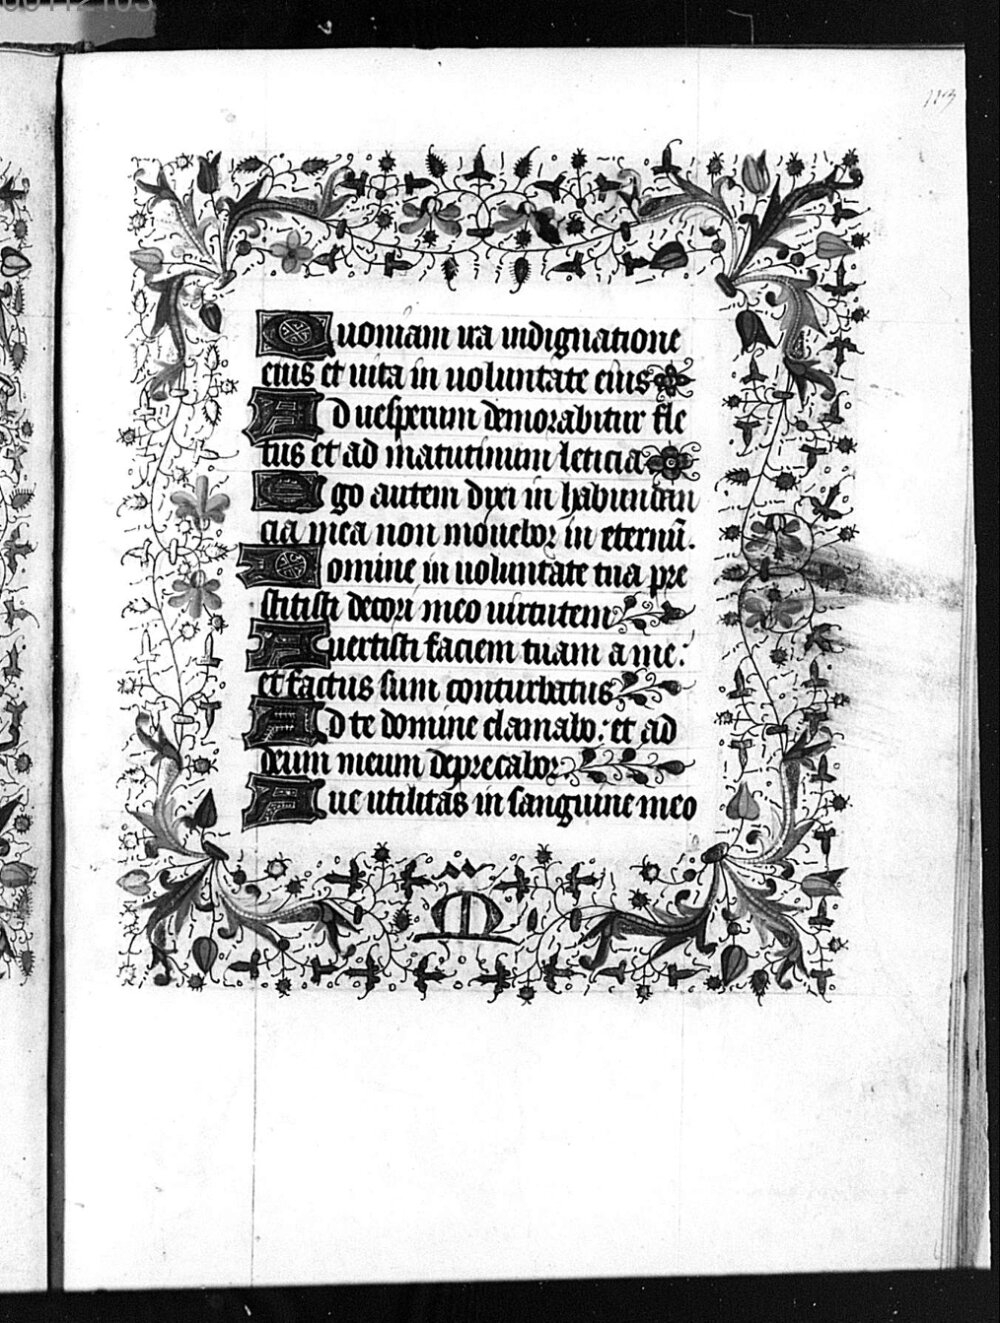 Quoniam ira in indignatione
eius et uita in uoluntate eius
Ad uesperum demorabitur fle
tus et ad matutinum leticia
Ego autem dixi in habundan
cia mea non mouebor in eternũ.
Domine in uoluntate tua pre
stitisti decori meo uirtutem
Auertisti faciem tuam a me:
et factus sum conturbatus
Ad te domine clamabo: et ad
deum meum deprecabor:
Que utilitas in sanguine meo
M